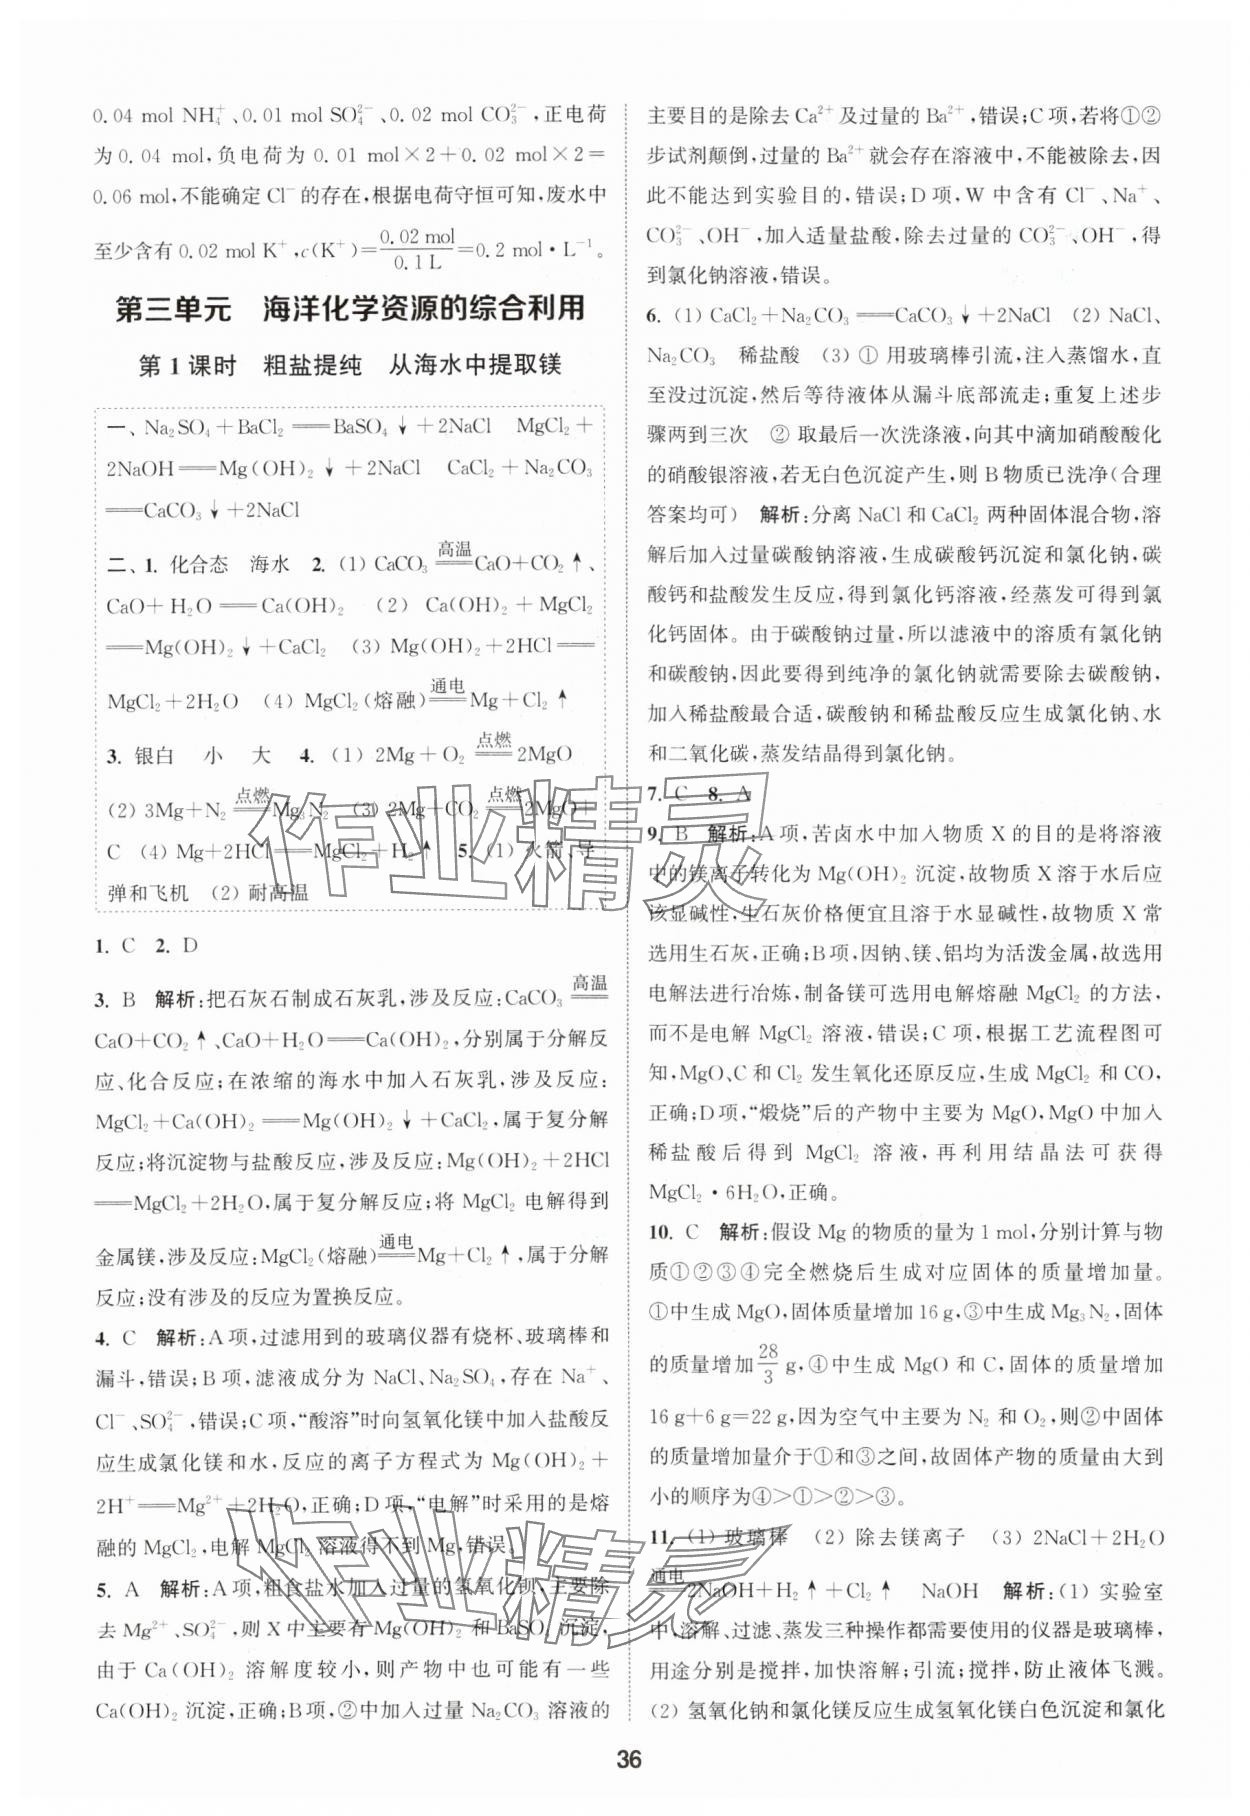 0.04 mol NH₄⁺、0.01 mol SO₄²⁻、0.02 mol CO₃²⁻，正电荷
为 0.04 mol，负电荷为 0.01 mol×2＋0.02 mol×2＝
0.06 mol，不能确定 Cl⁻ 的存在，根据电荷守恒可知，废水中
至少含有 0.02 mol K⁺，c(K⁺)＝0.02 mol/0.1 L＝0.2 mol·L⁻¹。
第三单元　海洋化学资源的综合利用
第 1 课时　粗盐提纯　从海水中提取镁
一、Na₂SO₄＋BaCl₂══BaSO₄↓＋2NaCl　MgCl₂＋
2NaOH══Mg(OH)₂↓＋2NaCl　CaCl₂＋Na₂CO₃
══CaCO₃↓＋2NaCl
二、1. 化合态　海水　2. (1) CaCO₃ 高温══ CaO＋CO₂↑、
CaO＋H₂O══Ca(OH)₂　(2) Ca(OH)₂＋MgCl₂
══Mg(OH)₂↓＋CaCl₂　(3) Mg(OH)₂＋2HCl══
MgCl₂＋2H₂O　(4) MgCl₂(熔融) 通电══ Mg＋Cl₂↑
3. 银白　小　大　4. (1) 2Mg＋O₂ 点燃══ 2MgO
(2) 3Mg＋N₂ 点燃══ Mg₃N₂　(3) 2Mg＋CO₂ 点燃══ 2MgO＋
C　(4) Mg＋2HCl══MgCl₂＋H₂↑　5. (1) 火箭、导
弹和飞机　(2) 耐高温
1. C　2. D
3. B　解析：把石灰石制成石灰乳，涉及反应：CaCO₃ 高温══
CaO＋CO₂↑、CaO＋H₂O══Ca(OH)₂，分别属于分解反
应、化合反应；在浓缩的海水中加入石灰乳，涉及反应：
MgCl₂＋Ca(OH)₂══Mg(OH)₂↓＋CaCl₂，属于复分解
反应；将沉淀物与盐酸反应，涉及反应：Mg(OH)₂＋2HCl
══MgCl₂＋2H₂O，属于复分解反应；将 MgCl₂ 电解得到
金属镁，涉及反应：MgCl₂(熔融) 通电══ Mg＋Cl₂↑，属于分解
反应；没有涉及的反应为置换反应。
4. C　解析：A 项，过滤用到的玻璃仪器有烧杯、玻璃棒和
漏斗，错误；B 项，滤液成分为 NaCl、Na₂SO₄，存在 Na⁺、
Cl⁻、SO₄²⁻，错误；C 项，“酸溶”时向氢氧化镁中加入盐酸反
应生成氯化镁和水，反应的离子方程式为 Mg(OH)₂＋
2H⁺══Mg²⁺＋2H₂O，正确；D 项，“电解”时采用的是熔
融的 MgCl₂，电解 MgCl₂ 溶液得不到 Mg，错误。
5. A　解析：A 项，粗食盐水加入过量的氢氧化钡，主要除
去 Mg²⁺、SO₄²⁻，则 X 中主要有 Mg(OH)₂ 和 BaSO₄ 沉淀，
由于 Ca(OH)₂ 溶解度较小，则产物中也可能有一些
Ca(OH)₂ 沉淀，正确；B 项，②中加入过量 Na₂CO₃ 溶液的
主要目的是除去 Ca²⁺及过量的 Ba²⁺，错误；C 项，若将①②
步试剂颠倒，过量的 Ba²⁺就会存在溶液中，不能被除去，因
此不能达到实验目的，错误；D 项，W 中含有 Cl⁻、Na⁺、
CO₃²⁻、OH⁻，加入适量盐酸，除去过量的 CO₃²⁻、OH⁻，得
到氯化钠溶液，错误。
6. (1) CaCl₂＋Na₂CO₃══CaCO₃↓＋2NaCl　(2) NaCl、
Na₂CO₃　稀盐酸　(3) ① 用玻璃棒引流，注入蒸馏水，直
至没过沉淀，然后等待液体从漏斗底部流走；重复上述步
骤两到三次　② 取最后一次洗涤液，向其中滴加硝酸酸化
的硝酸银溶液，若无白色沉淀产生，则 B 物质已洗净(合理
答案均可)　解析：分离 NaCl 和 CaCl₂ 两种固体混合物，溶
解后加入过量碳酸钠溶液，生成碳酸钙沉淀和氯化钠，碳
酸钙和盐酸发生反应，得到氯化钙溶液，经蒸发可得到氯
化钙固体。由于碳酸钠过量，所以滤液中的溶质有氯化钠
和碳酸钠，因此要得到纯净的氯化钠就需要除去碳酸钠，
加入稀盐酸最合适，碳酸钠和稀盐酸反应生成氯化钠、水
和二氧化碳，蒸发结晶得到氯化钠。
7. C　8. A
9. B　解析：A 项，苦卤水中加入物质 X 的目的是将溶液
中的镁离子转化为 Mg(OH)₂ 沉淀，故物质 X 溶于水后应
该显碱性，生石灰价格便宜且溶于水显碱性，故物质 X 常
选用生石灰，正确；B 项，因钠、镁、铝均为活泼金属，故选用
电解法进行冶炼，制备镁可选用电解熔融 MgCl₂ 的方法，
而不是电解 MgCl₂ 溶液，错误；C 项，根据工艺流程图可
知，MgO、C 和 Cl₂ 发生氧化还原反应，生成 MgCl₂ 和 CO，
正确；D 项，“煅烧”后的产物中主要为 MgO，MgO 中加入
稀盐酸后得到 MgCl₂ 溶液，再利用结晶法可获得
MgCl₂·6H₂O，正确。
10. C　解析：假设 Mg 的物质的量为 1 mol，分别计算与物
质①②③④完全燃烧后生成对应固体的质量增加量。
①中生成 MgO，固体质量增加 16 g，③中生成 Mg₃N₂，固体
的质量增加 28/3 g，④中生成 MgO 和 C，固体的质量增加
16 g＋6 g＝22 g，因为空气中主要为 N₂ 和 O₂，则②中固体
的质量增加量介于①和③之间，故固体产物的质量由大到
小的顺序为④>①>②>③。
11. (1) 玻璃棒　(2) 除去镁离子　(3) 2NaCl＋2H₂O
通电══ 2NaOH＋H₂↑＋Cl₂↑　NaOH　解析：(1) 实验室
中，溶解、过滤、蒸发三种操作都需要使用的仪器是玻璃棒，
用途分别是搅拌，加快溶解；引流；搅拌，防止液体飞溅。
(2) 氢氧化钠和氯化镁反应生成氢氧化镁白色沉淀和氯化
36
作业精灵
作业精灵